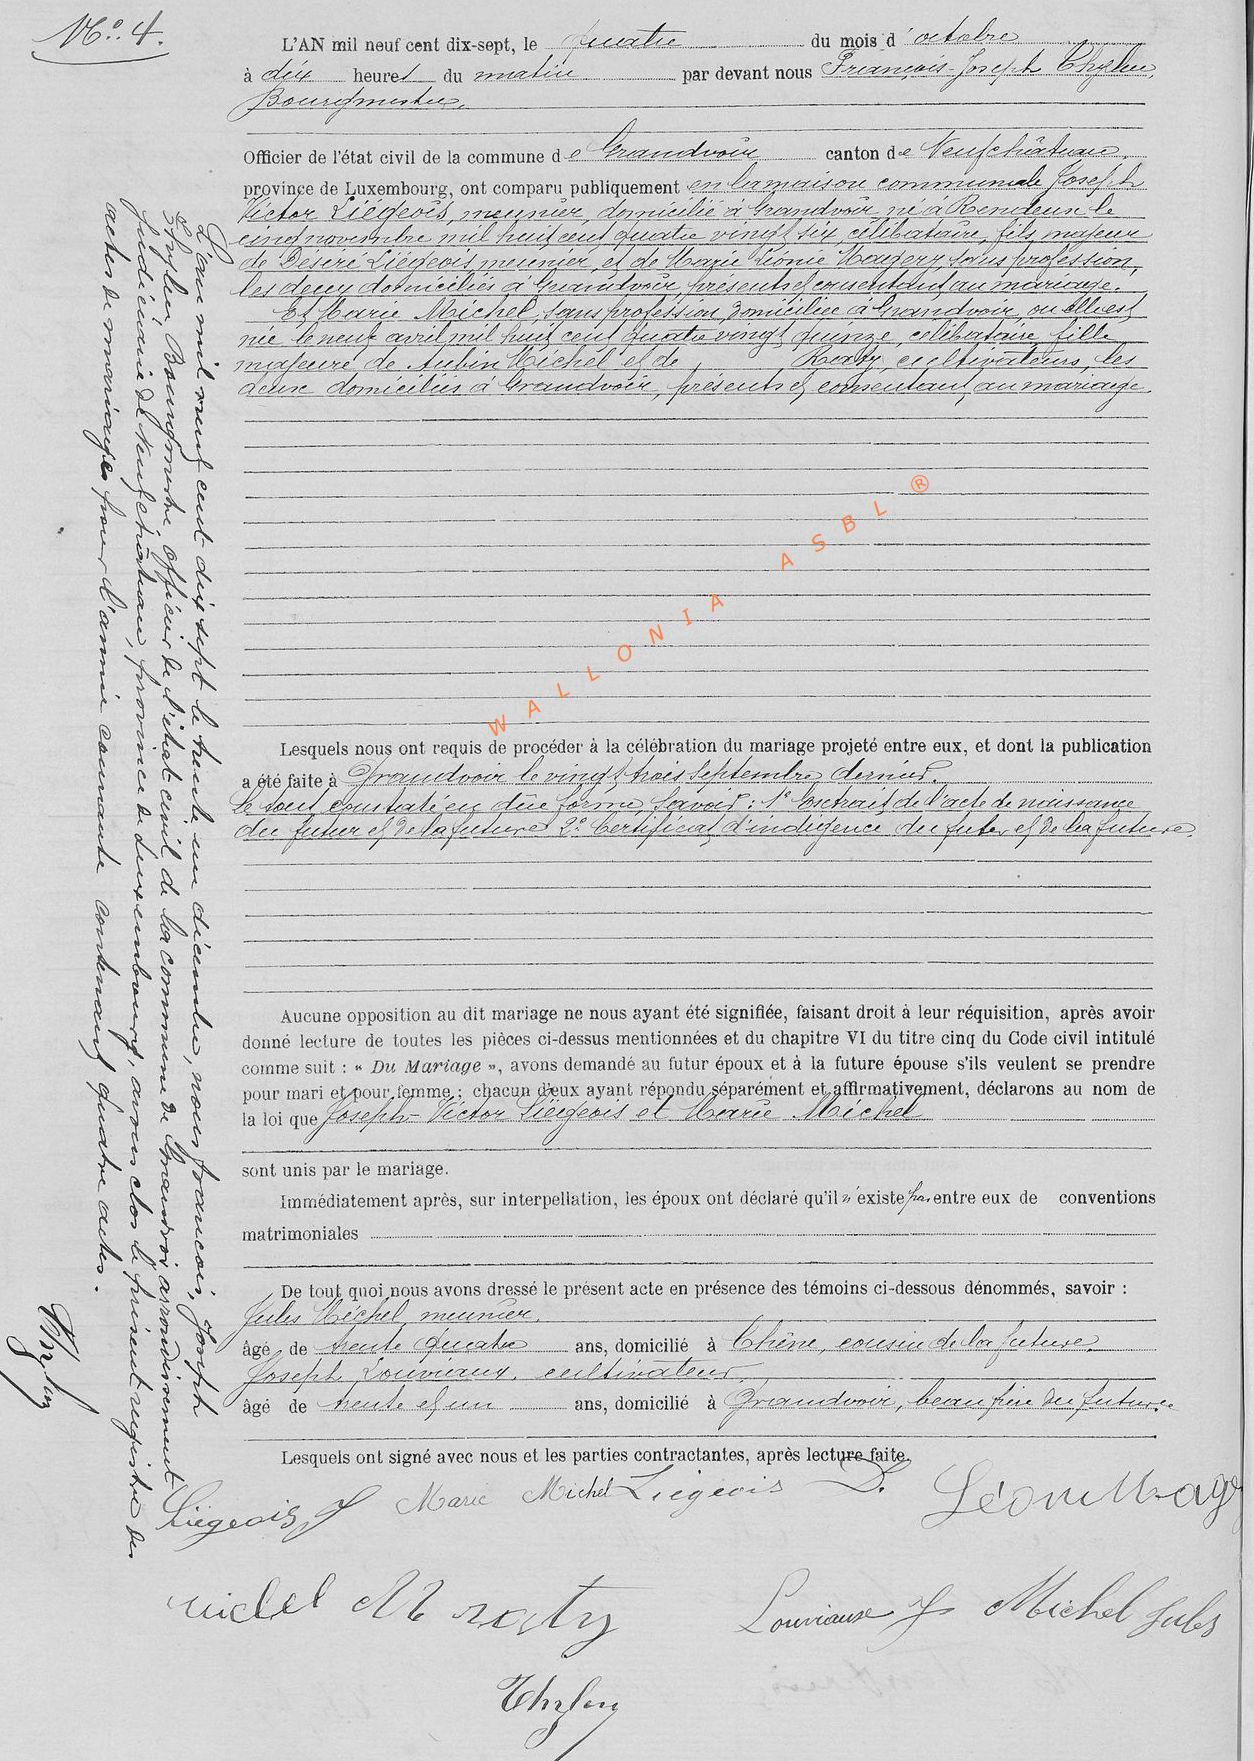 No. 4.
L'AN mil neuf cent dix-sept, le quatre du mois d' octobre
à dix heures du matin par devant nous François-Joseph Thylen,
Bourgmestre,
Officier de l'état civil de la commune de Grandvoir canton de Neufchâteau,
province de Luxembourg, ont comparu publiquement en la maison communale Joseph
Victor Liégeois, meunier, domicilié à Grandvoir, né à Rendeux le
cinq novembre mil huit cent quatre vingt six, célibataire, fils majeur
de Désiré Liégeois meunier, et de Marie Léonie Magery, sans profession,
les deux domiciliés à Grandvoir, présents et consentant au mariage.
Et Marie Michel, sans profession, domiciliée à Grandvoir, où elle est
née le neuf avril mil huit cent quatre vingt quinze, célibataire, fille
majeure de Aubin Michel et de Raty, cultivateurs, les
deux domiciliés à Grandvoir, présents et consentant au mariage.
WALLONIA ASBL ®
Lesquels nous ont requis de procéder à la célébration du mariage projeté entre eux, et dont la publication
a été faite à Grandvoir le vingt trois septembre dernier.
Le tout constaté en due forme, savoir : 1° Extrait de l'acte de naissance
du futur et de la future 2° Certificat d'indigence du futur et de la future.
Aucune opposition au dit mariage ne nous ayant été signifiée, faisant droit à leur réquisition, après avoir
donné lecture de toutes les pièces ci-dessus mentionnées et du chapitre VI du titre cinq du Code civil intitulé
comme suit : « Du Mariage », avons demandé au futur époux et à la future épouse s'ils veulent se prendre
pour mari et pour femme ; chacun d'eux ayant répondu séparément et affirmativement, déclarons au nom de
la loi que Joseph-Victor Liégeois et Marie Michel
sont unis par le mariage.
Immédiatement après, sur interpellation, les époux ont déclaré qu'il n'existe pas entre eux de conventions
matrimoniales
De tout quoi nous avons dressé le présent acte en présence des témoins ci-dessous dénommés, savoir :
Jules Michel, meunier,
âgé de trente quatre ans, domicilié à Chêne, cousin de la future.
Joseph Louviaux, cultivateur,
âgé de trente et un ans, domicilié à Grandvoir, beau frère du futur.
Lesquels ont signé avec nous et les parties contractantes, après lecture faite.
Liégeois J Marie Michel Liégeois D. Léonie Mage
Michel M raty Louviaux J Michel Jules
Thylen
L'an mil neuf cent dix sept le trente un décembre, nous François, Joseph
Thylen, Bourgmestre, officier de l'état civil de la commune de Grandvoir arrondissement
judiciaire de Neufchâteau, province de Luxembourg, avons clos le présent registre des
actes de mariages pour l'année courante contenant quatre actes.
Thylen